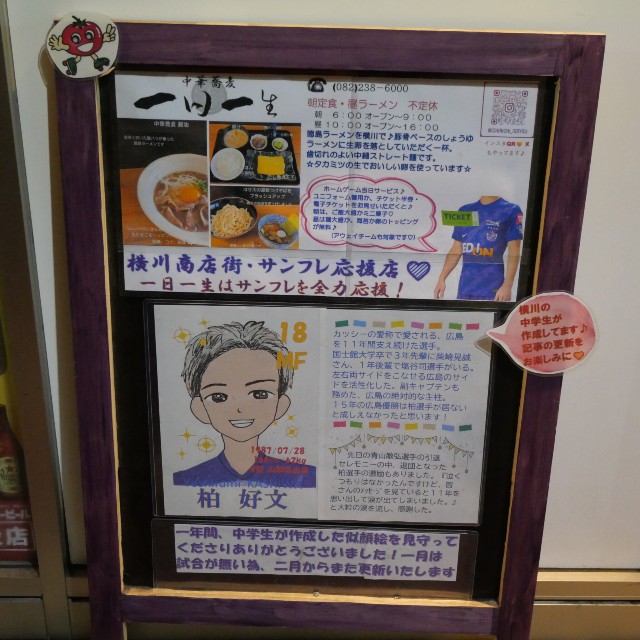 中華蕎麦
一日一生
☎ (082)238-6000
朝定食・昼ラーメン 不定休
朝 6:00オープン〜9:00
昼 10:00オープン〜16:00
徳島ラーメンを横川で♪豚骨ベースのしょうゆ
ラーメンに生卵を落としていただく一杯。
歯切れのよい中細ストレート麺です。
☆タカミツの生でおいしい卵を使っています☆
ホームゲーム当日サービス♪
ユニフォーム着用か、チケット半券・
電子チケットをお見せいただくと♪
(アウェイチームも対象です♡)
TICKET
インスタQR
もやってます♪
横川商店街・サンフレ応援店♡
一日一生はサンフレを全力応援!
横川の
中学生が
作成してます♪
記事の更新を
お楽しみに♡
18
MF
1987/07/28
柏 好文
カッシーの愛称で愛される、広島
を11年間支え続けた選手。
国士館大学卒で3年先輩に柴崎晃誠
さん、1年後輩で塩谷司選手がいる。
左右両サイドをこなせる広島のサイ
ドを活性化した。副キャプテンも
務めた、広島の絶対的な主柱。
15年の広島優勝は柏選手が居ない
と成しえなかったと思います!
先日の青山敏弘選手の引退
セレモニーの中、退団となった
柏選手の激励もありました。『泣く
つもりはなかったんですけど、皆
を見ていると11年を
思い出して涙が出てしまいました。』
と大粒の涙を流し、感謝した。
一年間、中学生が作成した似顔絵を見守って
くださりありがとうございました!一月は
試合が無い為、二月からまた更新いたします